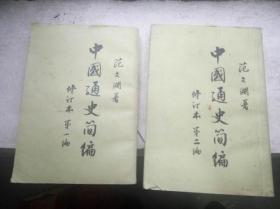 范文澜著
中國通史简编
修订本 第一编
范文澜著
中國通史简编
修订本 第二编